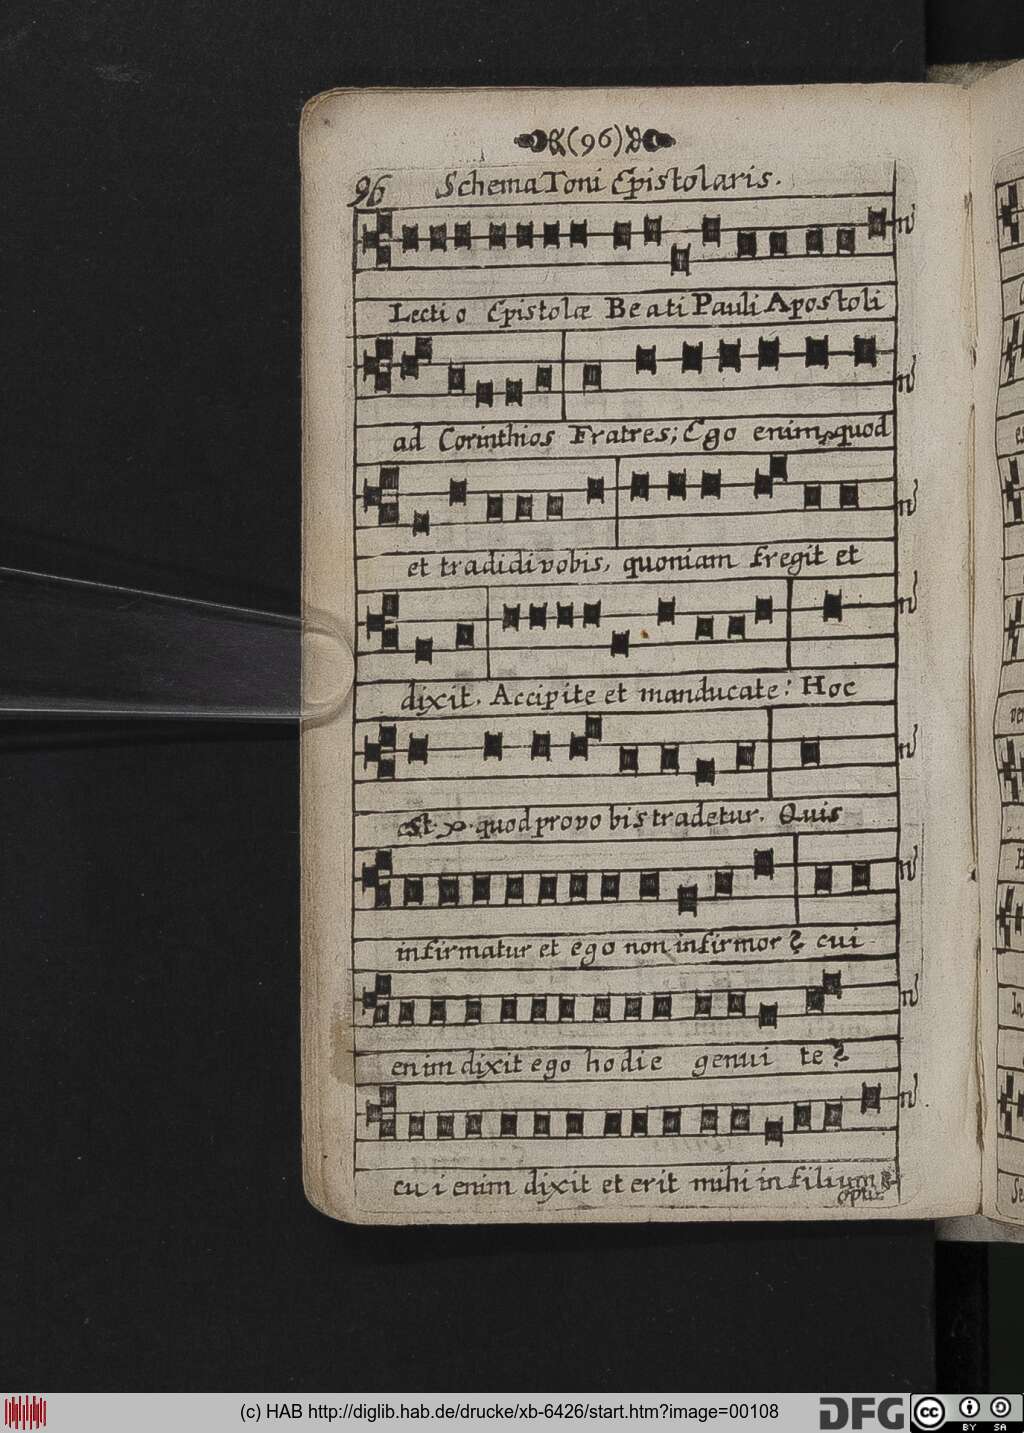 (96)
96 Schema Toni Epistolaris.
Lectio Epistolæ Beati Pauli Apostoli
ad Corinthios Fratres; Ego enim, quod
et tradidi vobis, quoniam fregit et
dixit. Accipite et manducate: Hoc
est quod pro vobis tradetur. Quis
infirmatur et ego non infirmor? cui
enim dixit ego hodie genui te?
cui enim dixit et erit mihi in filium?
(c) HAB http://diglib.hab.de/drucke/xb-6426/start.htm?image=00108
DFG
cc
BY SA